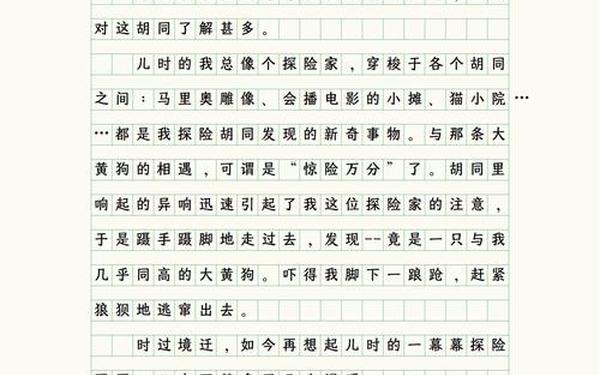 对这胡同了解甚多。
儿时的我总像个探险家，穿梭于各个胡同
之间：马里奥雕像、会播电影的小摊、猫小院…
…都是我探险胡同发现的新奇事物。与那条大
黄狗的相遇，可谓是“惊险万分”了。胡同里
响起的异响迅速引起了我这位探险家的注意，
于是蹑手蹑脚地走过去，发现--竟是一只与我
几乎同高的大黄狗。吓得我脚下一踉跄，赶紧
狼狈地逃窜出去。
时过境迁，如今再想起儿时的一幕幕探险